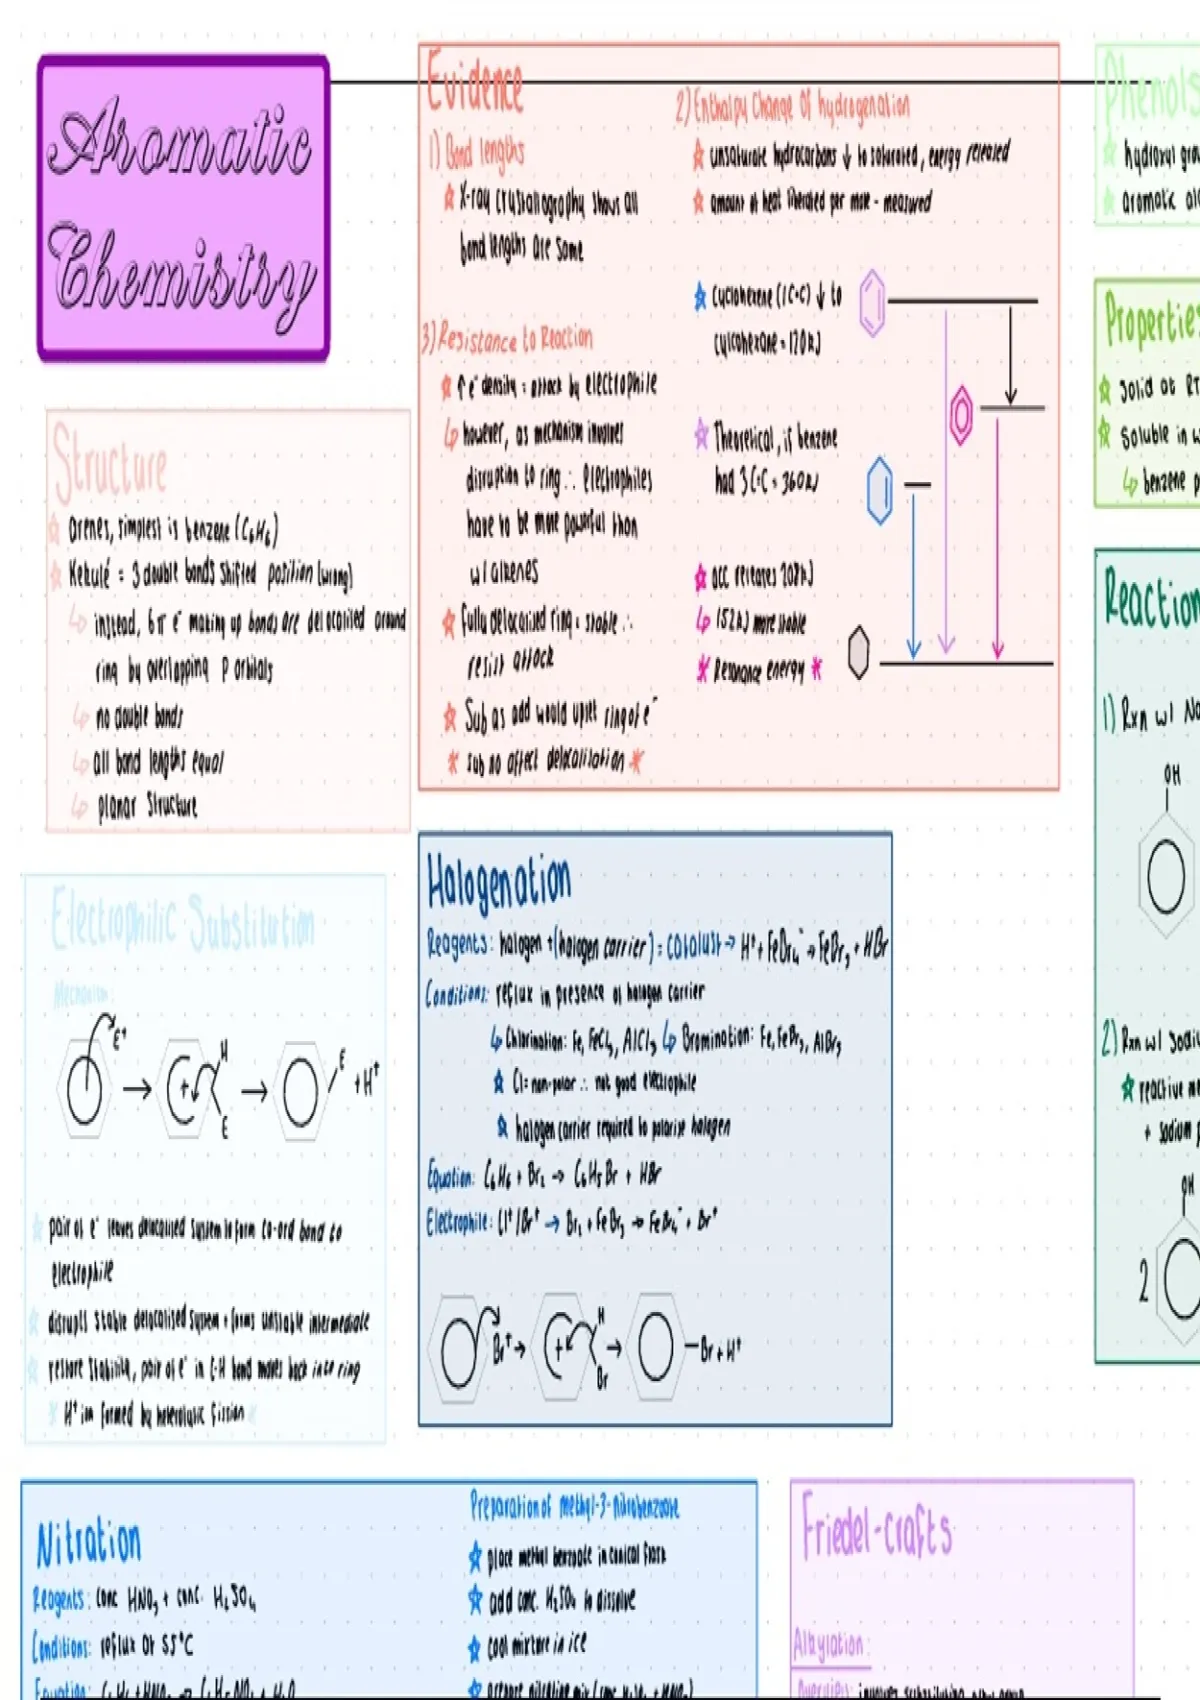 Aromatic
Chemistry
Structure
arenes, simplest is benzene (C6H6)
Kekulé = 3 double bonds shifted position (wrong)
instead, 6π e⁻ making up bonds are delocalised around
ring by overlapping p orbitals
no double bonds
all bond lengths equal
planar structure
Evidence
1) Bond lengths
X-ray crystallography shows all
bond lengths are same
3) Resistance to Reaction
↑ e⁻ density = attack by electrophile
however, as mechanism involves
disruption to ring ∴ electrophiles
have to be more powerful than
w/ alkenes
fully delocalised ring = stable ∴
resist attack
Sub as add would upset ring of e⁻
sub no affect delocalisation
2) Enthalpy Change of hydrogenation
unsaturate hydrocarbons ↓ to saturated, energy released
amount of heat liberated per mole - measured
cyclohexene (1C=C) ↓ to
cylcohexane = 120kJ
Theoretical, if benzene
had 3C=C = 360kJ
acc releases 208kJ
152kJ more stable
Resonance energy
Electrophilic Substitution
Mechanism:
E⁺
H
E
E
+ H⁺
pair of e⁻ leaves delocalised system to form co-ord bond to
electrophile
disrupts stable delocalised system + forms unstable intermediate
restore stability, pair of e⁻ in C-H bond moves back into ring
H⁺ ion formed by heterolytic fission
Halogenation
Reagents: halogen + (halogen carrier) = catalyst → H⁺ + FeBr4⁻ → FeBr3 + HBr
Conditions: reflux in presence of halogen carrier
Chlorination: Fe, FeCl3, AlCl3 Bromination: Fe, FeBr3, AlBr3
Cl = non-polar ∴ not good electrophile
halogen carrier required to polarise halogen
Equation: C6H6 + Br2 → C6H5Br + HBr
Electrophile: Cl⁺/Br⁺ → Br2 + FeBr3 → FeBr4⁻ + Br⁺
Br⁺ →
H
Br
→
-Br + H⁺
Phenols
hydroxyl
aromatic
Properties
solid at RT
soluble in
benzene
Reaction
1) Rxn w/
OH
2) Rxn w/
reactive
+ sodium
OH
2
Nitration
Reagents: conc HNO3 + conc. H2SO4
Conditions: reflux at 55°C
Equation: C6H6 + HNO3 → C6H5NO2 + H2O
Preparation of methyl-3-nitrobenzoate
place methyl benzoate in conical flask
add conc. H2SO4 to dissolve
cool mixture in ice
prepare nitrating mix (conc H2SO4 + HNO3)
Friedel-crafts
Alkylation:
Overview: involves substituting